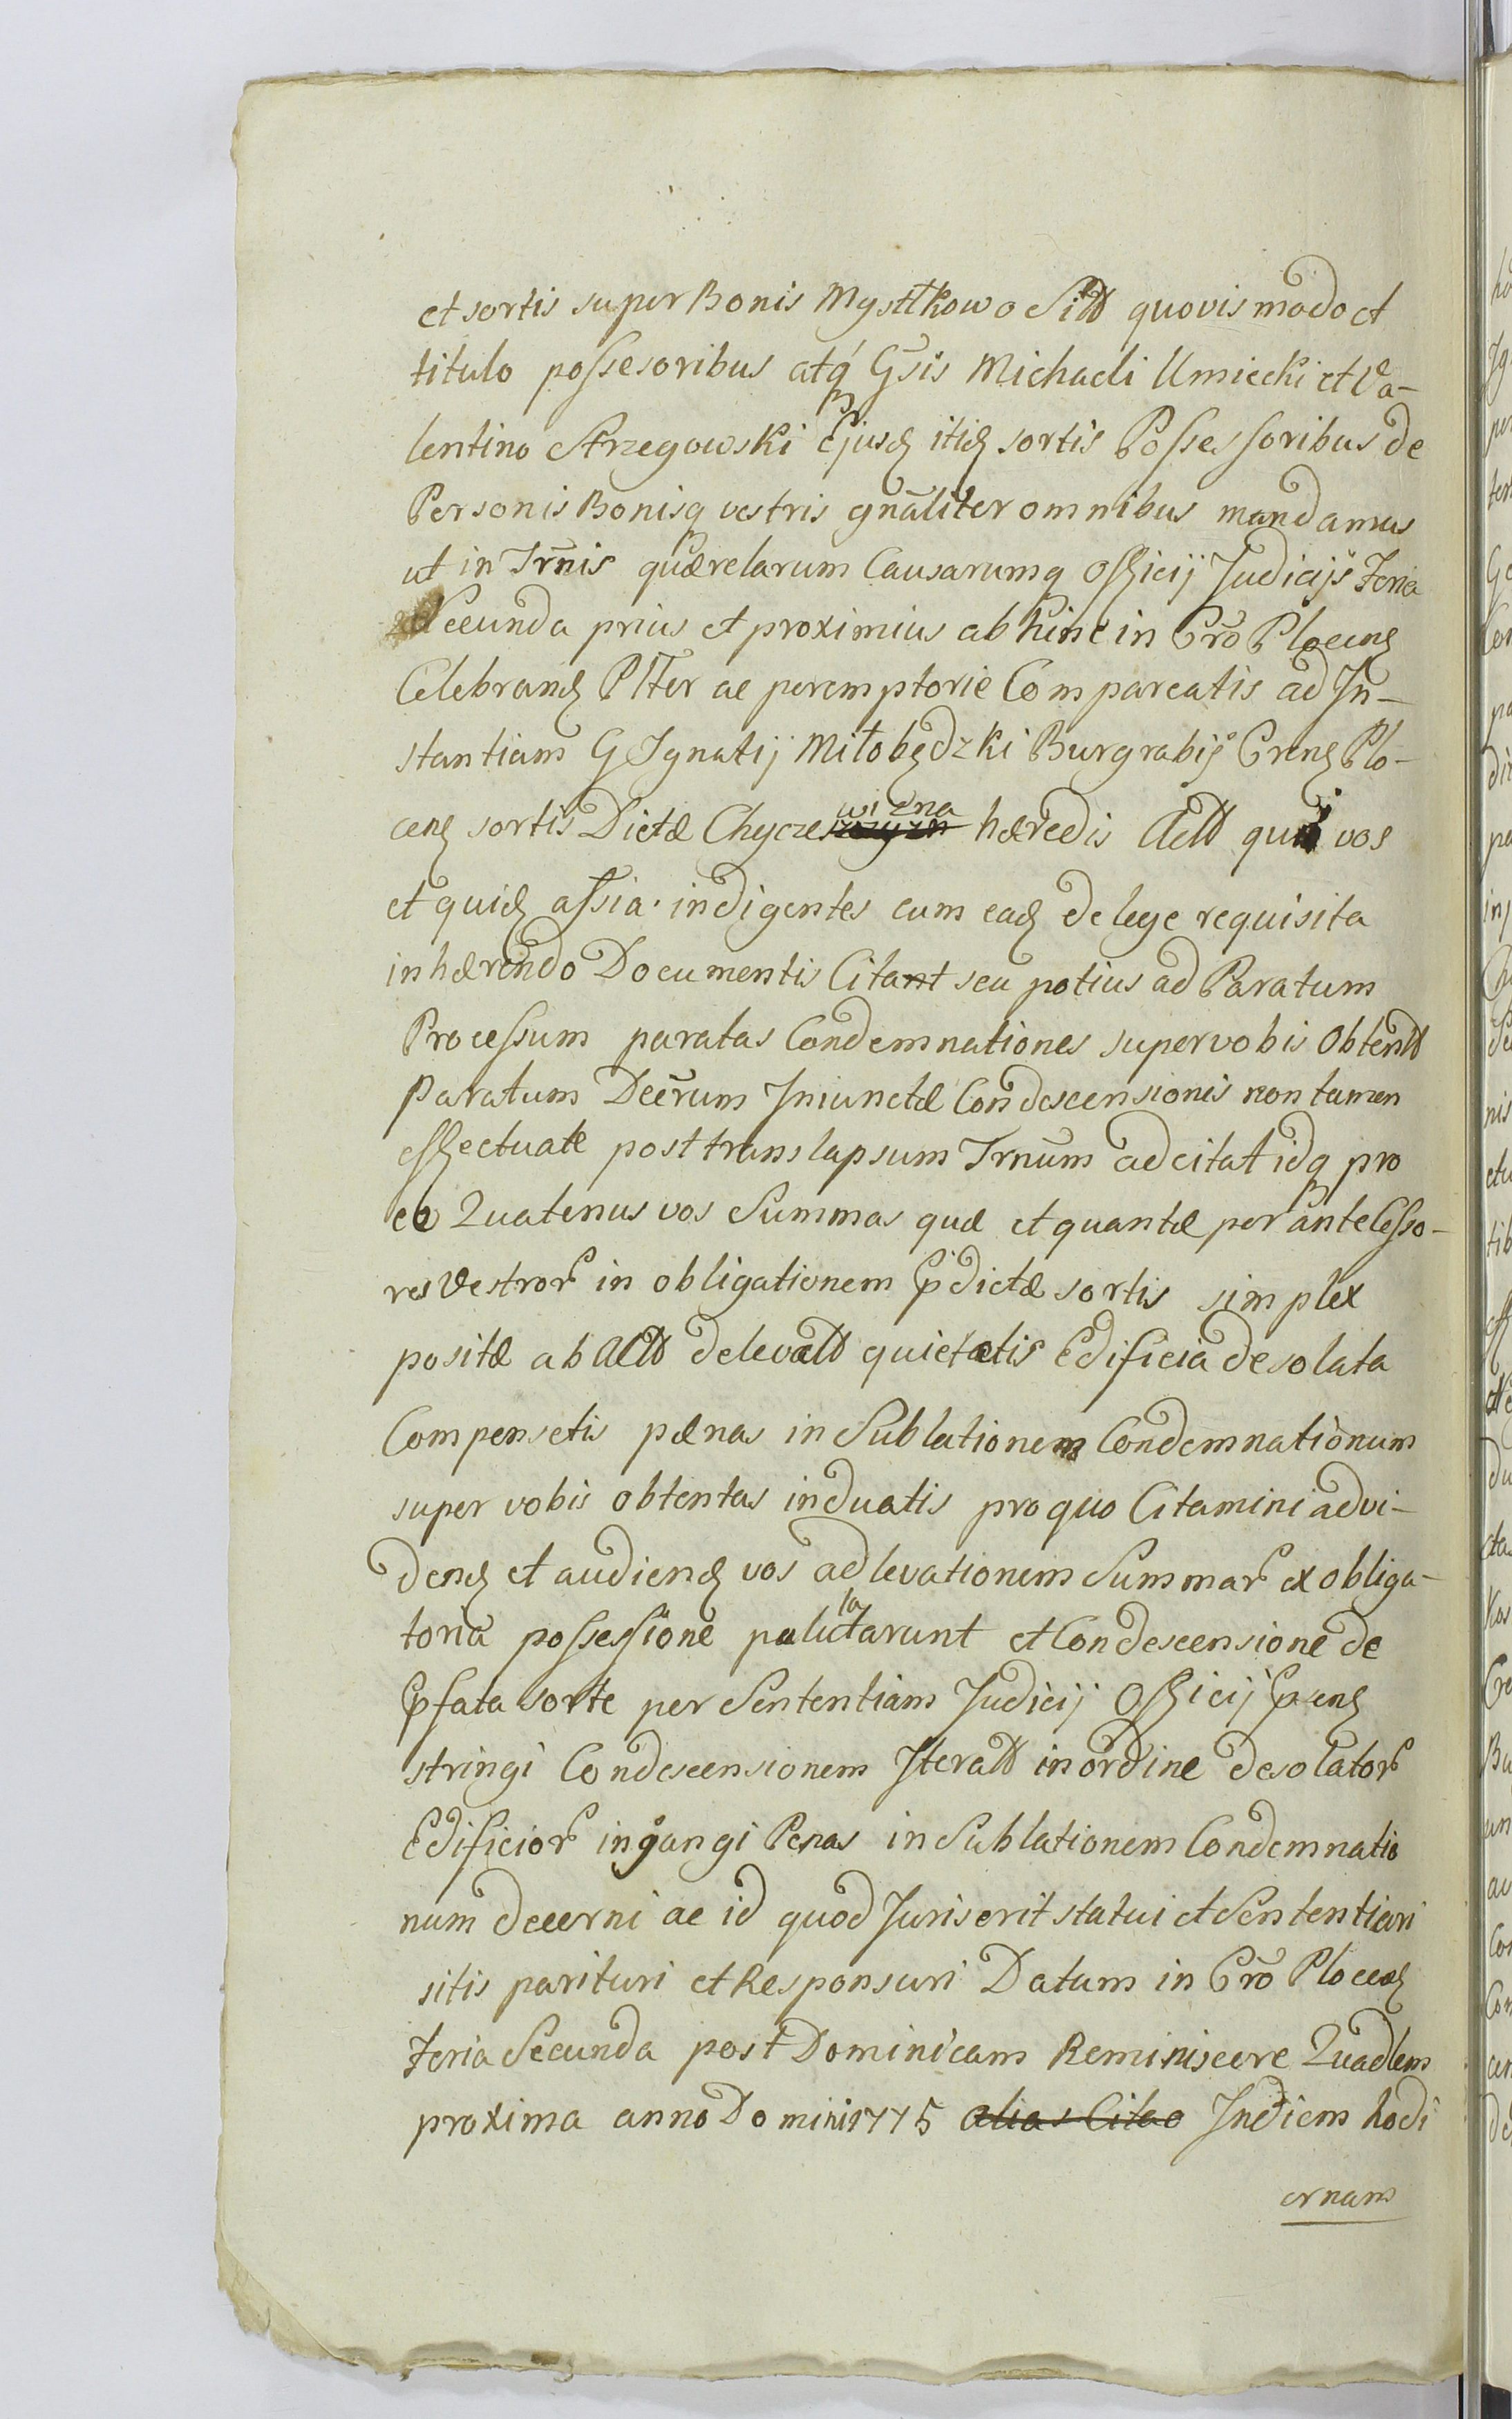 et sortis super Bonis Mystkowo Sitt quovis modo et
titulo possesoribus atq́ Gsis Michaeli Umiecki et Va-
lentino Strzegowski Ejusq itiq sortis Possessoribus de
Personis Bonisq vestris gnāliter omnibus mandamus
ut in Trnis quærelarum Causarumq Officij Judicijs Feria
Secunda prius et proximius abhinc in Cro Plocenq
Celebranq Plter ac peremptorie Compareatis ad In-
stantiam G Ignatij Miłobędzki Burgrabij Crenq Plo-
cenq sortis Dictæ Chyczewizna hæredis Actt qui vos
et quiq assia. indigentes cum eaq de lege requisita
inhærendo Documentis Citant seu potius ad Paratum
Processum paratas Condemnationes super vobis Obtentt
paratum Decrum Iniunctæ Condescensionis non tamen
effectuate post translapsum Trnum adcitat idq pro
eo Quatenus vos Summas quæ et quantæ per antecesso-
res Vestror in obligationem Pdictæ sortis simplex
positæ ab Actt delevatt quietatis Edificia desolata
Compensetis pænas in Sublationem Condemnationum
super vobis obtentas induatis pro quo Citamini ad vi-
denq et audienq vos ad levationem Summar ex obliga-
toria possessione et Condescensione de
Pfata sorte per Sententiam Judicij Officij Psenq
stringi Condescensionem Iteratt in ordine desolator
Edificior injungi Penas in Sublationem Condemnatio
num decerni ac id quod Juris erit statui et Sententiari
sitis parituri et Responsuri Datum in Cro Plocenq
Feria Secunda post Dominicam Reminiscere Quadlem
proxima anno Domini 1775 alias Citao In diem hodi
ernam